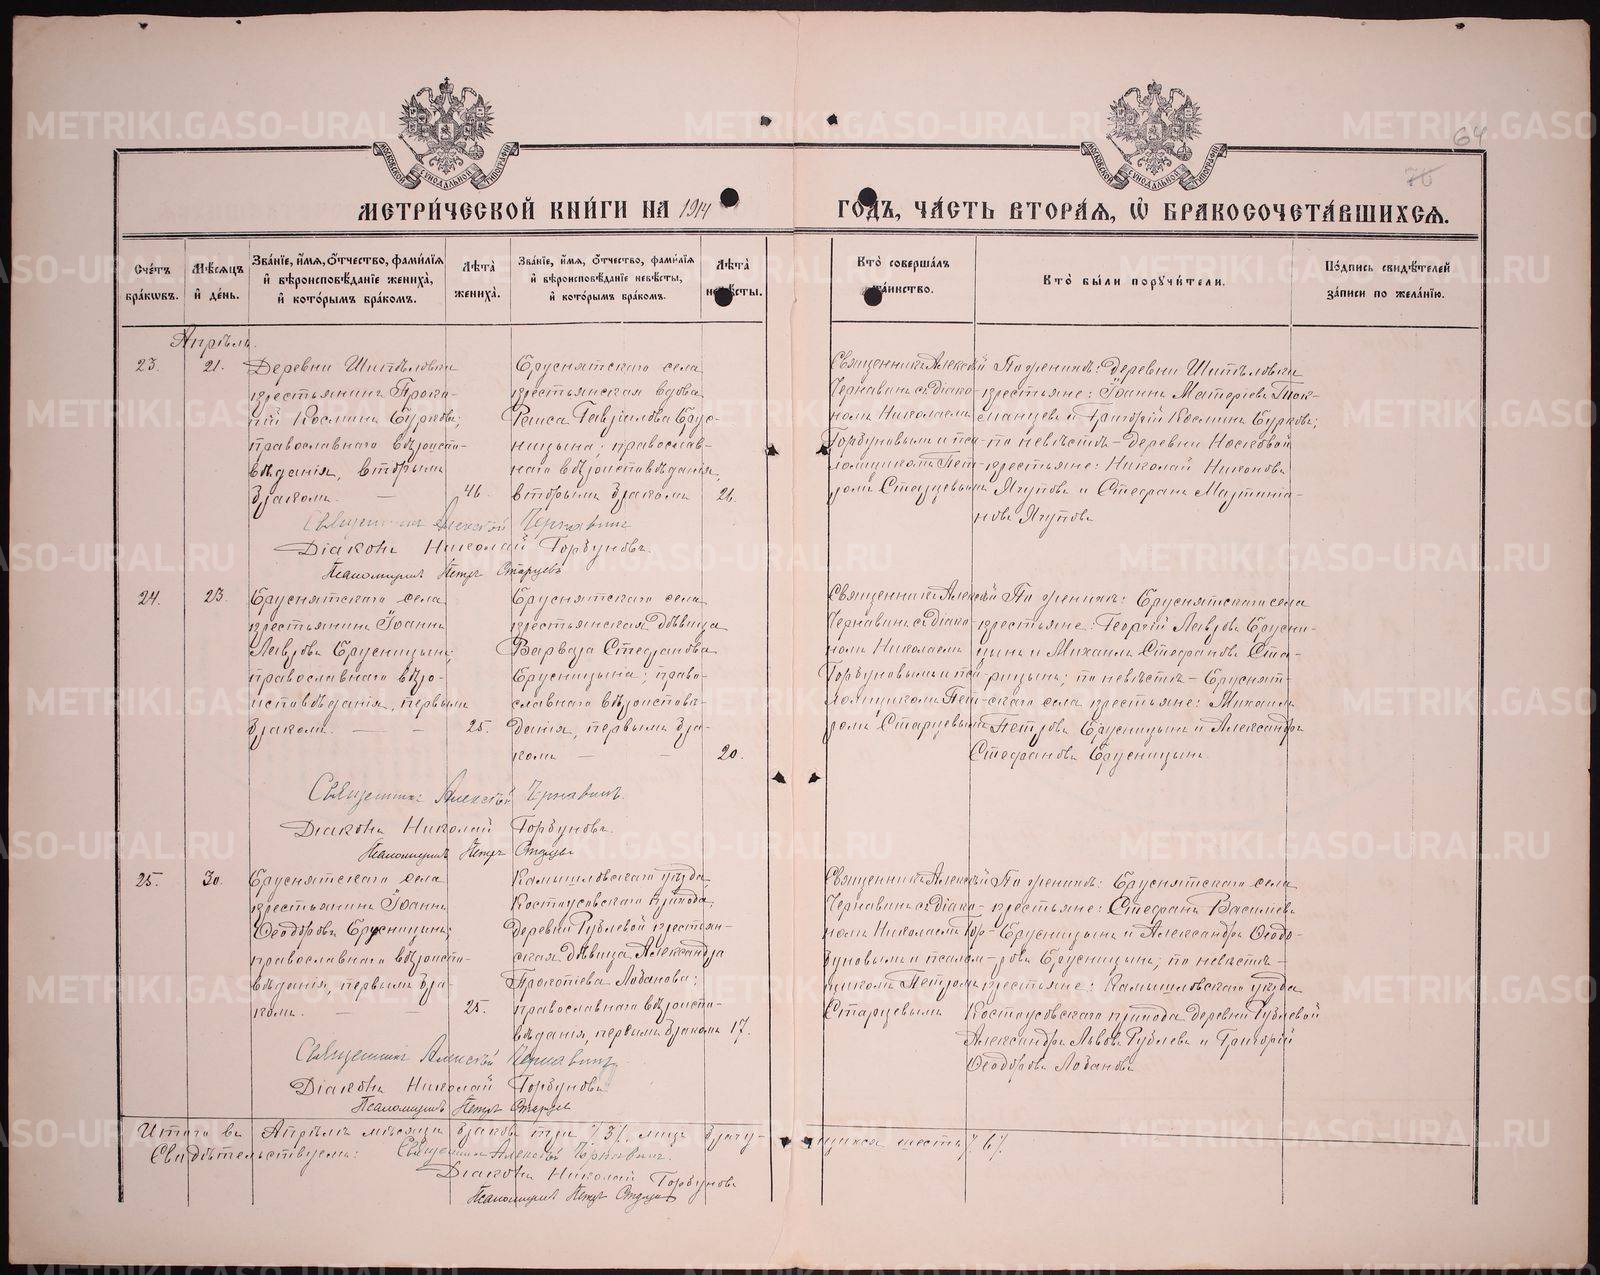 64
76
МЕТРИ́ЧЕСКОЙ КНИ́ГИ НА 1914 ГОДЪ, ЧА́СТЬ ВТОРА́Я, Ѡ҆ БРАКОСОЧЕТА́ВШИХСЯ.
Сче́тъ бра́кѡвъ.
Мѣ́сяцъ и҆ де́нь.
Зва́нїе, и҆́мя, ѻ҆́тчество, фами́лїя и҆ вѣроисповѣ́данїе жениха̀, и҆ кото́рымъ бра́комъ.
Лѣ́та жениха̀.
Зва́нїе, и҆́мя, ѻ҆́тчество, фами́лїя и҆ вѣроисповѣ́данїе невѣ́сты, и҆ кото́рымъ бра́комъ.
Лѣ́та невѣ́сты.
Кто̀ соверша́лъ та́инство.
Кто̀ бы́ли порꙋчи́тели.
По́дпись свидѣ́телей за́писи по жела́нїю.
Апрѣль.
23.
21.
Деревни Шипѣловки
крестьянинъ Проко-
пій Косминъ Бурковъ;
православнаго вѣроиспо-
вѣданія, вторымъ
бракомъ.
46.
Бруснятскаго села
крестьянская вдова
Раиса Гавріилова Брус-
ницына; православ-
наго вѣроисповѣданія,
вторымъ бракомъ
26.
Священникъ Алексѣй
Чернавинъ съ діако-
номъ Николаемъ
Горбуновымъ и пса-
ломщикомъ Пет-
ромъ Старцевымъ
По женихѣ: деревни Шипѣловки
крестьяне: Іоаннъ
и Григорій Косминъ Бурковъ;
по невѣстѣ – деревни Носковой
крестьяне: Николай Никоновъ
Ягуповъ и Стефанъ Мартиніа-
новъ Ягуповъ
Священникъ Алексѣй Чернавинъ
Діаконъ Николай Горбуновъ.
Псаломщикъ Петръ Старцевъ
24.
23.
Бруснятскаго села
крестьянинъ Іоаннъ
Лавровъ Брусницынъ;
православнаго вѣро-
исповѣданія, первымъ
бракомъ.
25.
Бруснятскаго села
крестьянская дѣвица
Варвара Стефанова
Брусницына; право-
славнаго вѣроисповѣ-
данія, первымъ бра-
комъ
20.
Священникъ Алексѣй
Чернавинъ съ діако-
номъ Николаемъ
Горбуновымъ и пса-
ломщикомъ Пет-
ромъ Старцевымъ
По женихѣ: Бруснятскаго села
крестьяне: Георгій Лавровъ Брусни-
цынъ и Михаилъ Стефановъ Ста-
рицынъ; по невѣстѣ – Бруснят-
скаго села крестьяне: Михаилъ
Петровъ Брусницынъ и Александръ
Стефановъ Брусницынъ.
Священникъ Алексѣй Чернавинъ.
Діаконъ Николай Горбуновъ.
Псаломщикъ Петръ Старцевъ
25.
30.
Бруснятскаго села
крестьянинъ Іоаннъ
Ѳеодоровъ Брусницынъ;
православнаго вѣроиспо-
вѣданія, первымъ бра-
комъ.
25.
Камышловскаго уѣзда,
Костоусовскаго прихода,
деревни Рублевой крестьян-
ская дѣвица Александра
Прокопіева Лобанова;
православнаго вѣроиспо-
вѣданія, первымъ бракомъ
17.
Священникъ Алексѣй
Чернавинъ съ діако-
номъ Николаемъ Гор-
буновымъ и псалом-
щикомъ Петромъ
Старцевымъ
По женихѣ: Бруснятскаго села
крестьяне: Стефанъ Василіевъ
Брусницынъ и Александръ Ѳеодо-
ровъ Брусницынъ; по невѣстѣ –
крестьяне: Камышловскаго уѣзда
Костоусовскаго прихода деревни Рублевой
Александръ Львовъ Рублевъ и Григорій
Ѳеодоровъ Лобановъ
Священникъ Алексѣй Чернавинъ
Діаконъ Николай Горбуновъ
Псаломщикъ Петръ Старцевъ
Итого въ Апрѣлѣ мѣсяцѣ браковъ три /3/, лицъ брачу-ющихся шесть /6/.
Свидѣтельствуемъ: Священникъ Алексѣй Чернавинъ.
Діаконъ Николай Горбуновъ
Псаломщикъ Петръ Старцевъ
METRIKI.GASO-URAL.RU